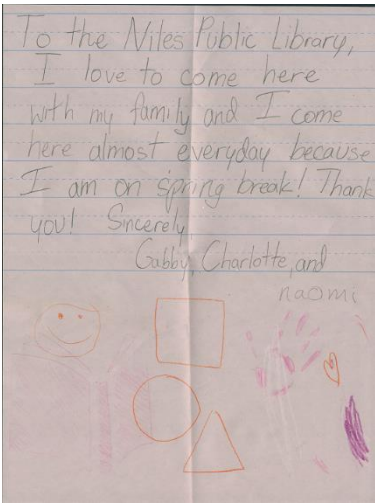 To the Niles Public Library,
I love to come here
with my family and I come
here almost everyday because
I am on spring break! Thank
you! Sincerely
Gabby, Charlotte, and
naomi